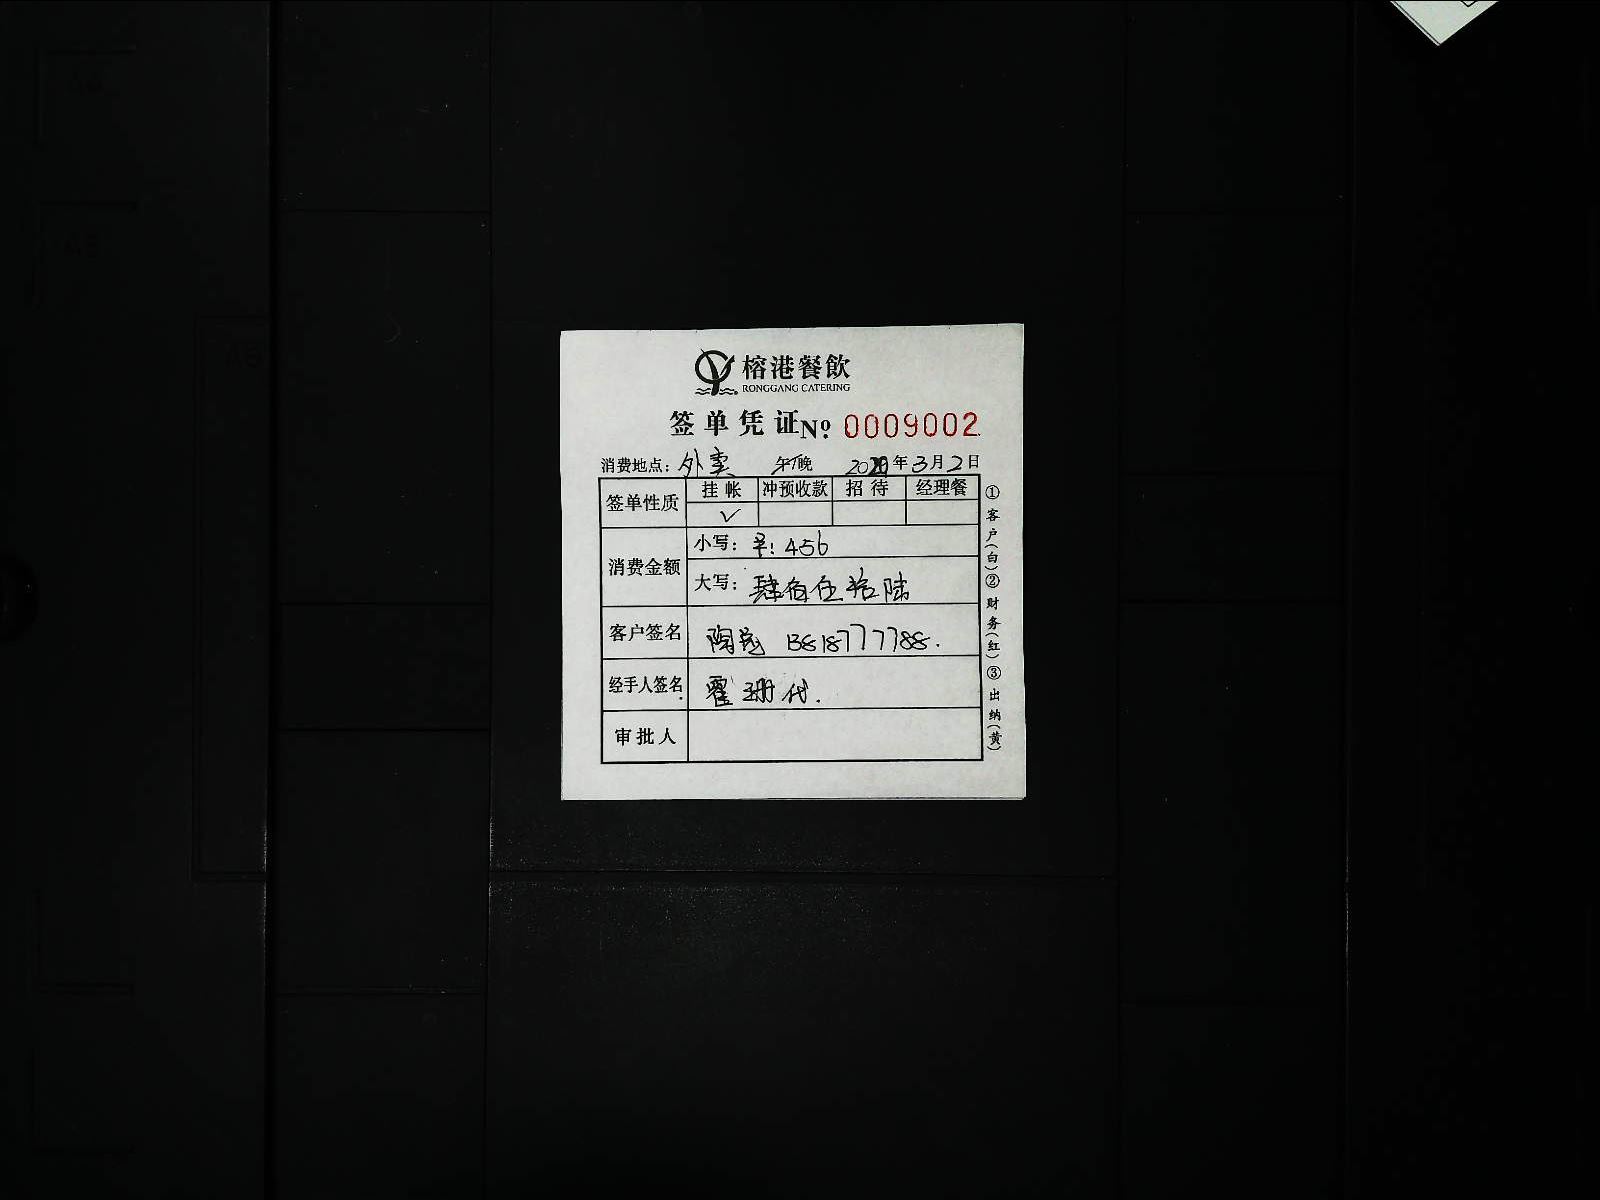 榕港餐飲
RONGGANG CATERING
签单凭证 № 0009002
消费地点：外卖 午/晚 2020年3月2日
签单性质 挂帐 冲预收款 招待 经理餐
✓
消费金额 小写：¥：456
大写：肆佰伍拾陆
客户签名 陶总 13818777788.
经手人签名 霍珊代.
审批人
①客户(白)②财务(红)③出纳(黄)